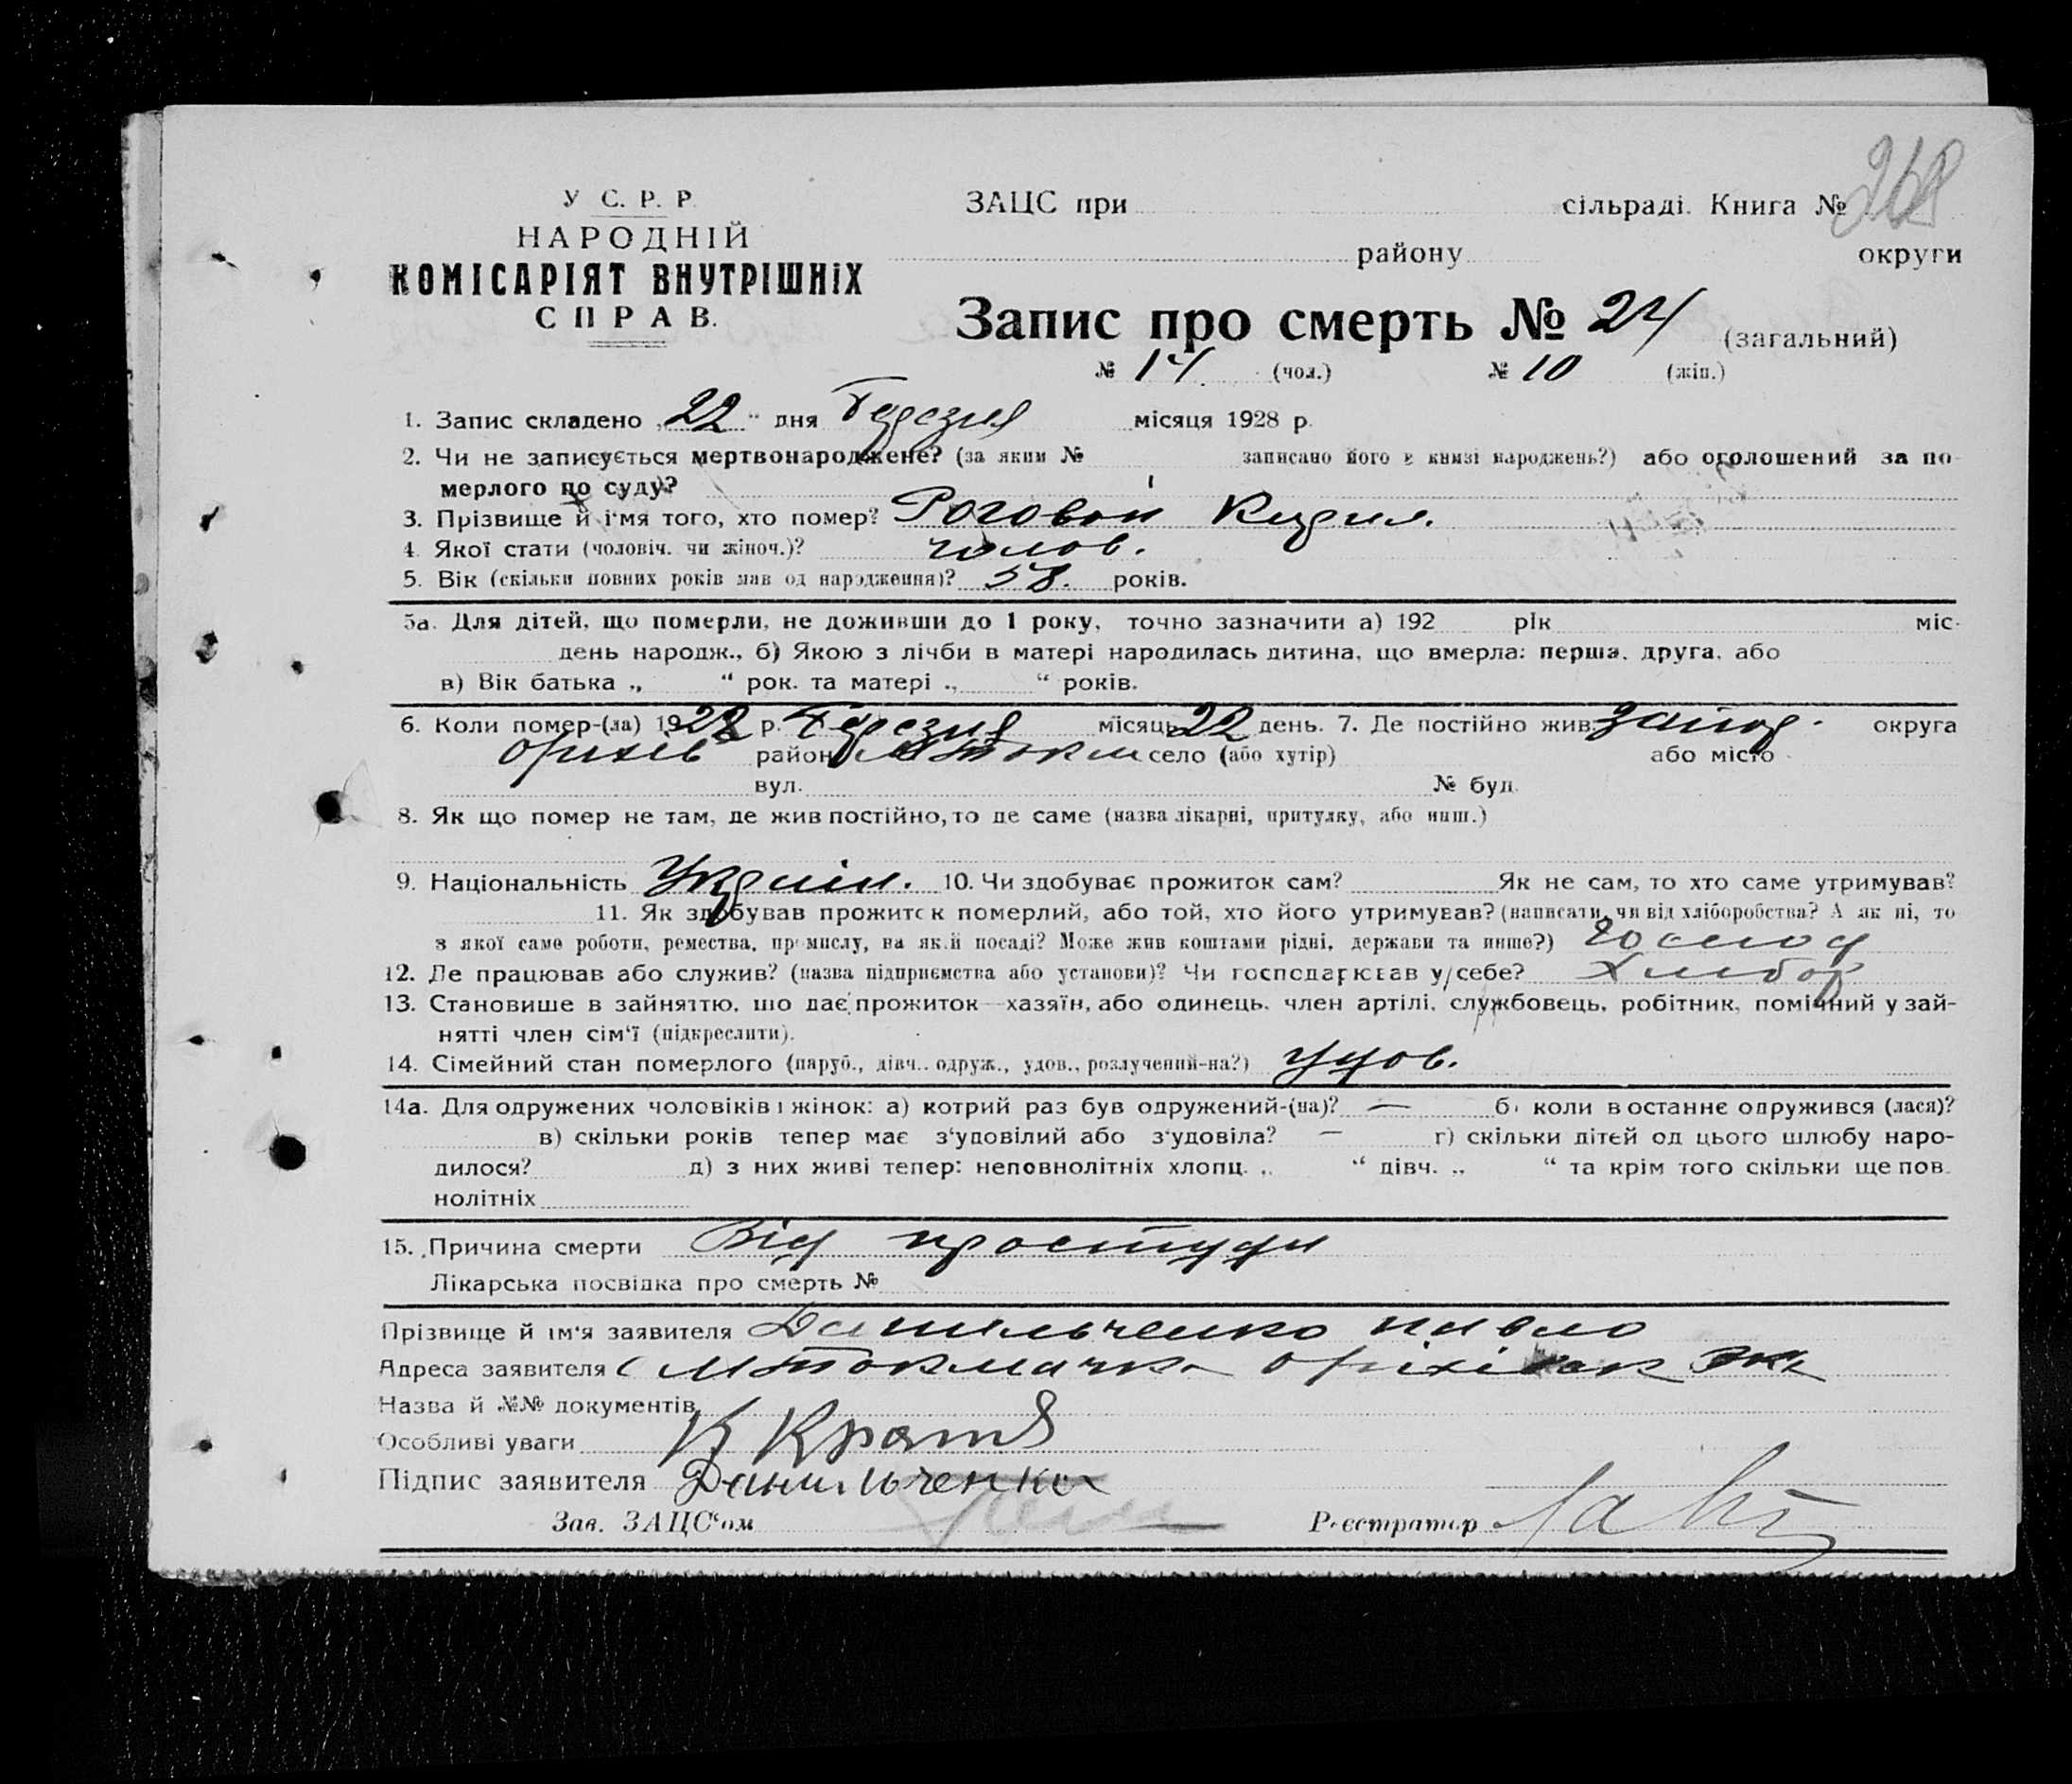 268
У С. Р. Р.
НАРОДНІЙ
КОМІСАРІЯТ ВНУТРІШНІХ
СПРАВ.
ЗАЦС при сільраді. Книга №
району округи
Запис про смерть № 24 (загальний)
№ 14. (чол.) № 10 (жін.)
1. Запис складено „22" дня Березня місяця 1928 р.
2. Чи не записується мертвонароджене? (за яким № записано його в книзі народжень?) або оголошений за по-
мерлого по суду?
3. Прізвище й ім'я того, хто помер? Роговой Кирил.
4. Якої стати (чоловіч. чи жіноч.)? чолов.
5. Вік (скільки повних років мав од народження)? 58. років.
5а. Для дітей, що померли, не доживши до 1 року, точно зазначити а) 192 рік міс.
день народж., б) Якою з лічби в матері народилась дитина, що вмерла: перша, друга, або
в) Вік батька „ “ рок. та матері „ “ років.
6. Коли помер-(ла) 1928 р. Березня місяць 22 день. 7. Де постійно жив. Запор. округа
Оріхів район М Токм село (або хутір) або місто
вул. № буд.
8. Як що помер не там, де жив постійно, то де саме (назва лікарні, притулку, або инш.)
9. Національність Україн. 10. Чи здобуває прожиток сам? Як не сам, то хто саме утримував?
11. Як здобував прожиток померлий, або той, хто його утримував? (написати, чи від хліборобства? А як ні, то
з якої саме роботи, ремества, промислу, на якій посаді? Може жив коштами рідні, держави та инше?) господ
12. Де працював або служив? (назва підприємства або установи)? Чи господарював у себе? Хлібор
13. Становише в зайняттю, що дає прожиток—хазяїн, або одинець, член артілі, службовець, робітник, помічний у зай-
нятті член сім'ї (підкреслити).
14. Сімейний стан померлого (паруб., дівч., одруж., удов., розлучений-на?) Удов.
14а. Для одружених чоловіків і жінок: а) котрий раз був одружений-(на)? — б) коли в останнє одружився (лася)?
в) скільки років тепер має з'удовілий або з'удовіла? — г) скільки дітей од цього шлюбу наро-
дилося? д) з них живі тепер: неповнолітніх хлопц. „ “ дівч. „ “ та крім того скільки ще пов-
нолітніх
15. Причина смерти Від простуди
Лікарська посвідка про смерть №
Прізвище й ім'я заявителя Данильченко Павло
Адреса заявителя с М Токмачка Оріхівськ
Назва й №№ документів
Особливі уваги
Підпис заявителя Данильченко
Зав. ЗАЦС'ом Реєстратор